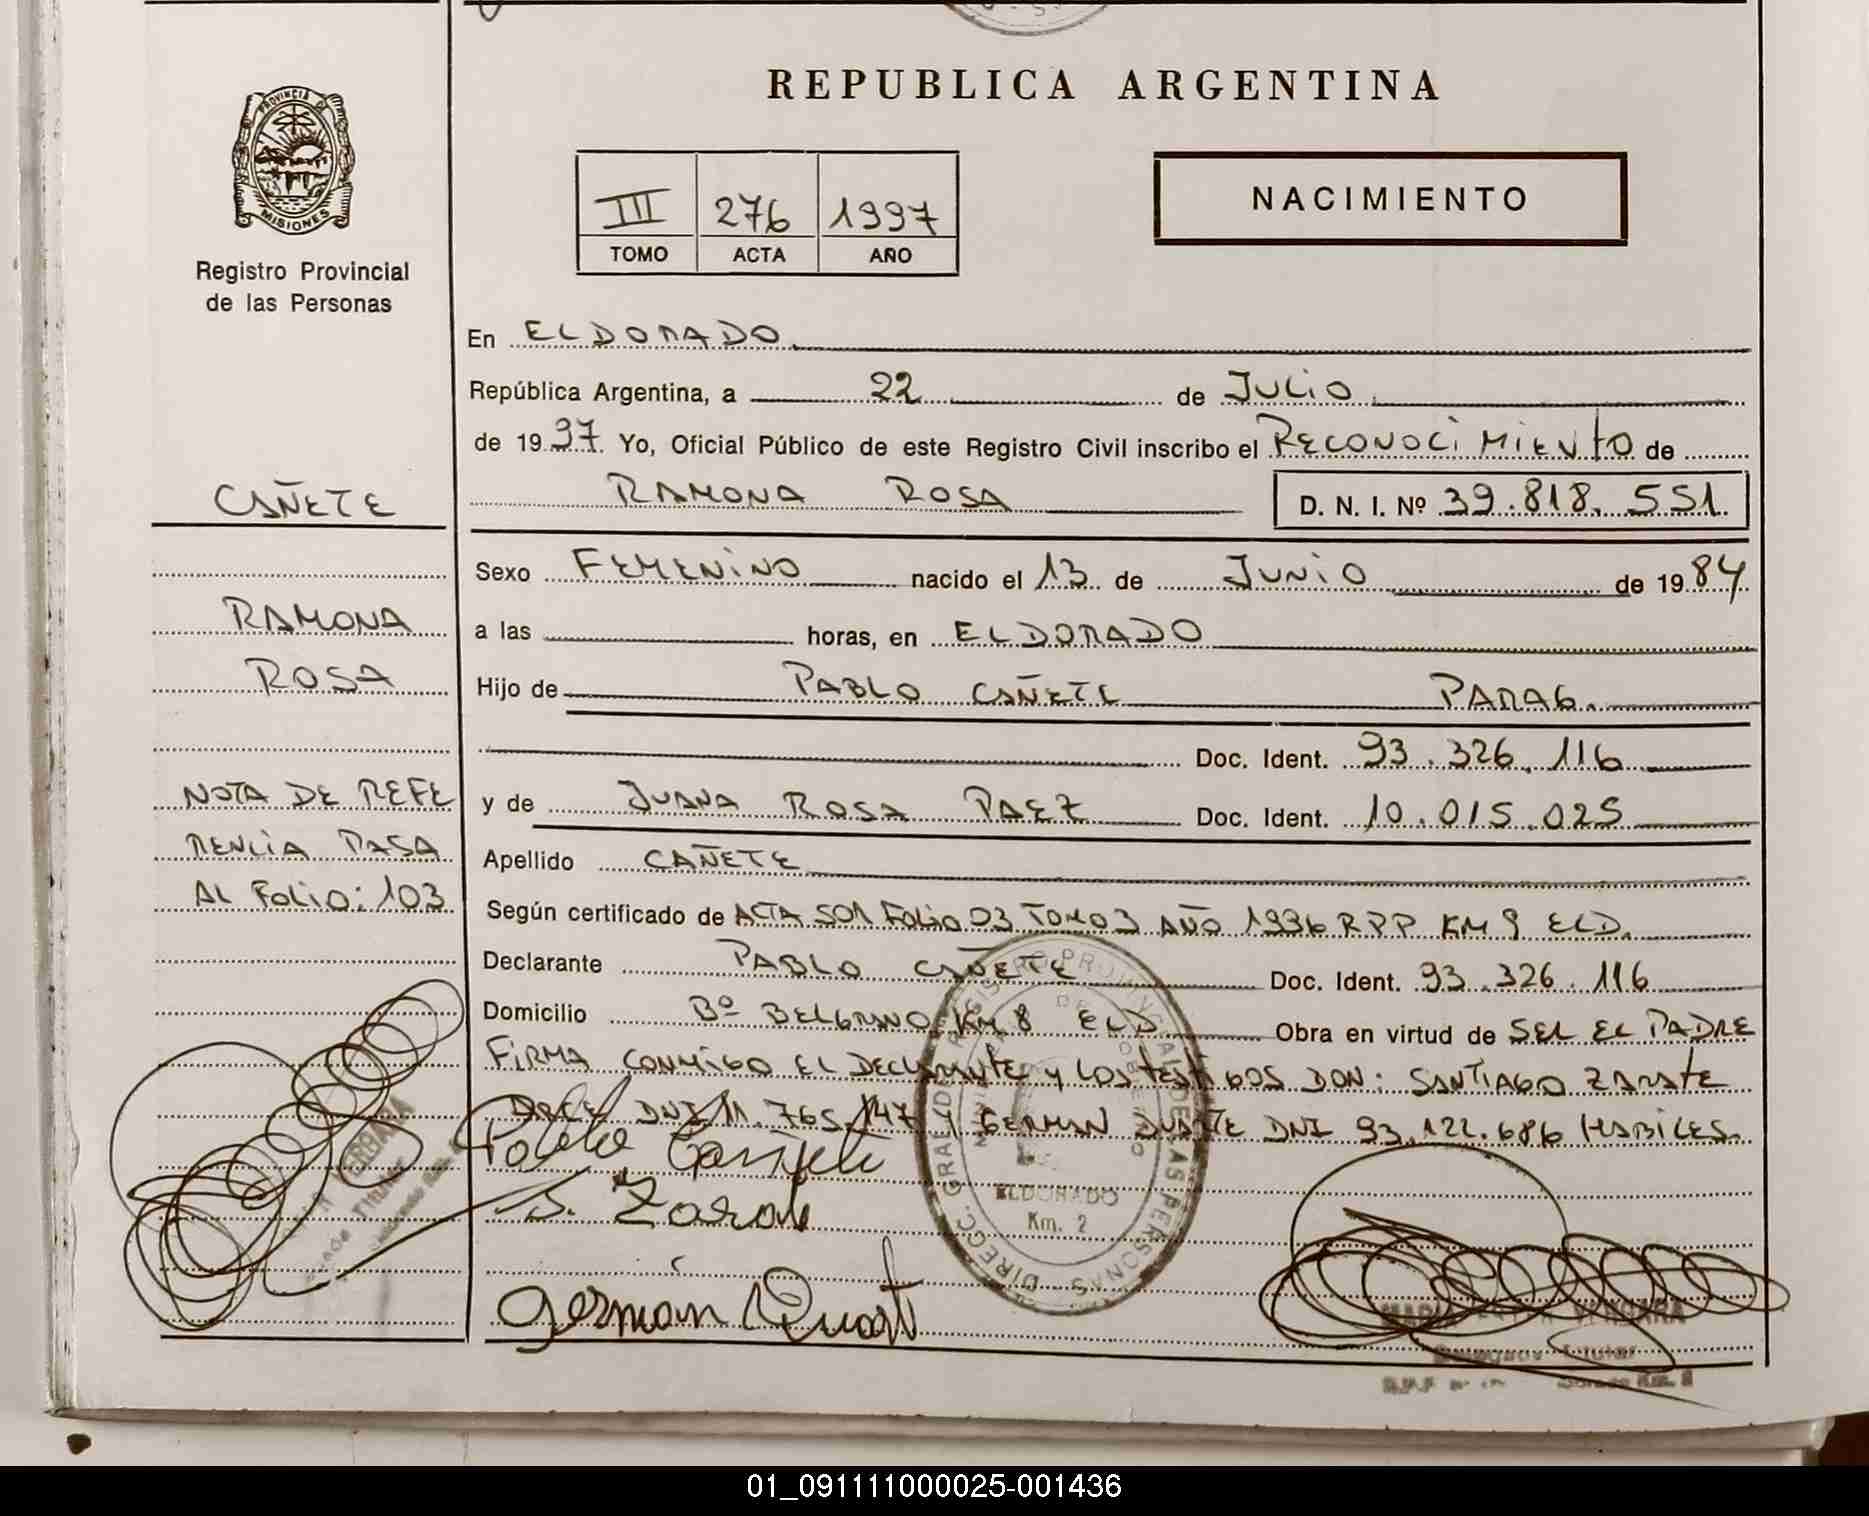 REPUBLICA ARGENTINA
PROVINCIA DE
MISIONES
Registro Provincial
de las Personas
III 276 1997
TOMO ACTA AÑO
NACIMIENTO
En ELDORADO
República Argentina, a 22 de JULIO
de 1997. Yo, Oficial Público de este Registro Civil inscribo el RECONOCIMIENTO de
RAMONA ROSA D. N. I. Nº 39.818.551
CAÑETE
Sexo FEMENINO nacido el 13 de JUNIO de 1984
RAMONA
a las horas, en ELDORADO
ROSA
Hijo de PABLO CAÑETE PARAG.
Doc. Ident. 93.326.116
NOTA DE REFE
y de JUANA ROSA PAEZ Doc. Ident. 10.015.025
RENCIA PASA
Apellido CAÑETE
AL FOLIO: 103
Según certificado de ACTA 501 FOLIO 03 TOMO 3 AÑO 1996 RPP KM 9 ELD.
Declarante PABLO CAÑETE Doc. Ident. 93.326.116
Domicilio Bº BELGRANO KM 8 ELD Obra en virtud de SER EL PADRE
FIRMA CONMIGO EL DECLARANTE Y LOS TESTIGOS DON: SANTIAGO ZARATE
DNI 11.765.147 Y GERMAN DUARTE DNI 93.122.686 HABILES.
Pablo Cañete
S. Zarate
germán Duart
DIRECC. GRAL. DEL REGISTRO PROVINCIAL DE LAS PERSONAS
ELDORADO
Km. 2
VERGARA
Titular
01_091111000025-001436